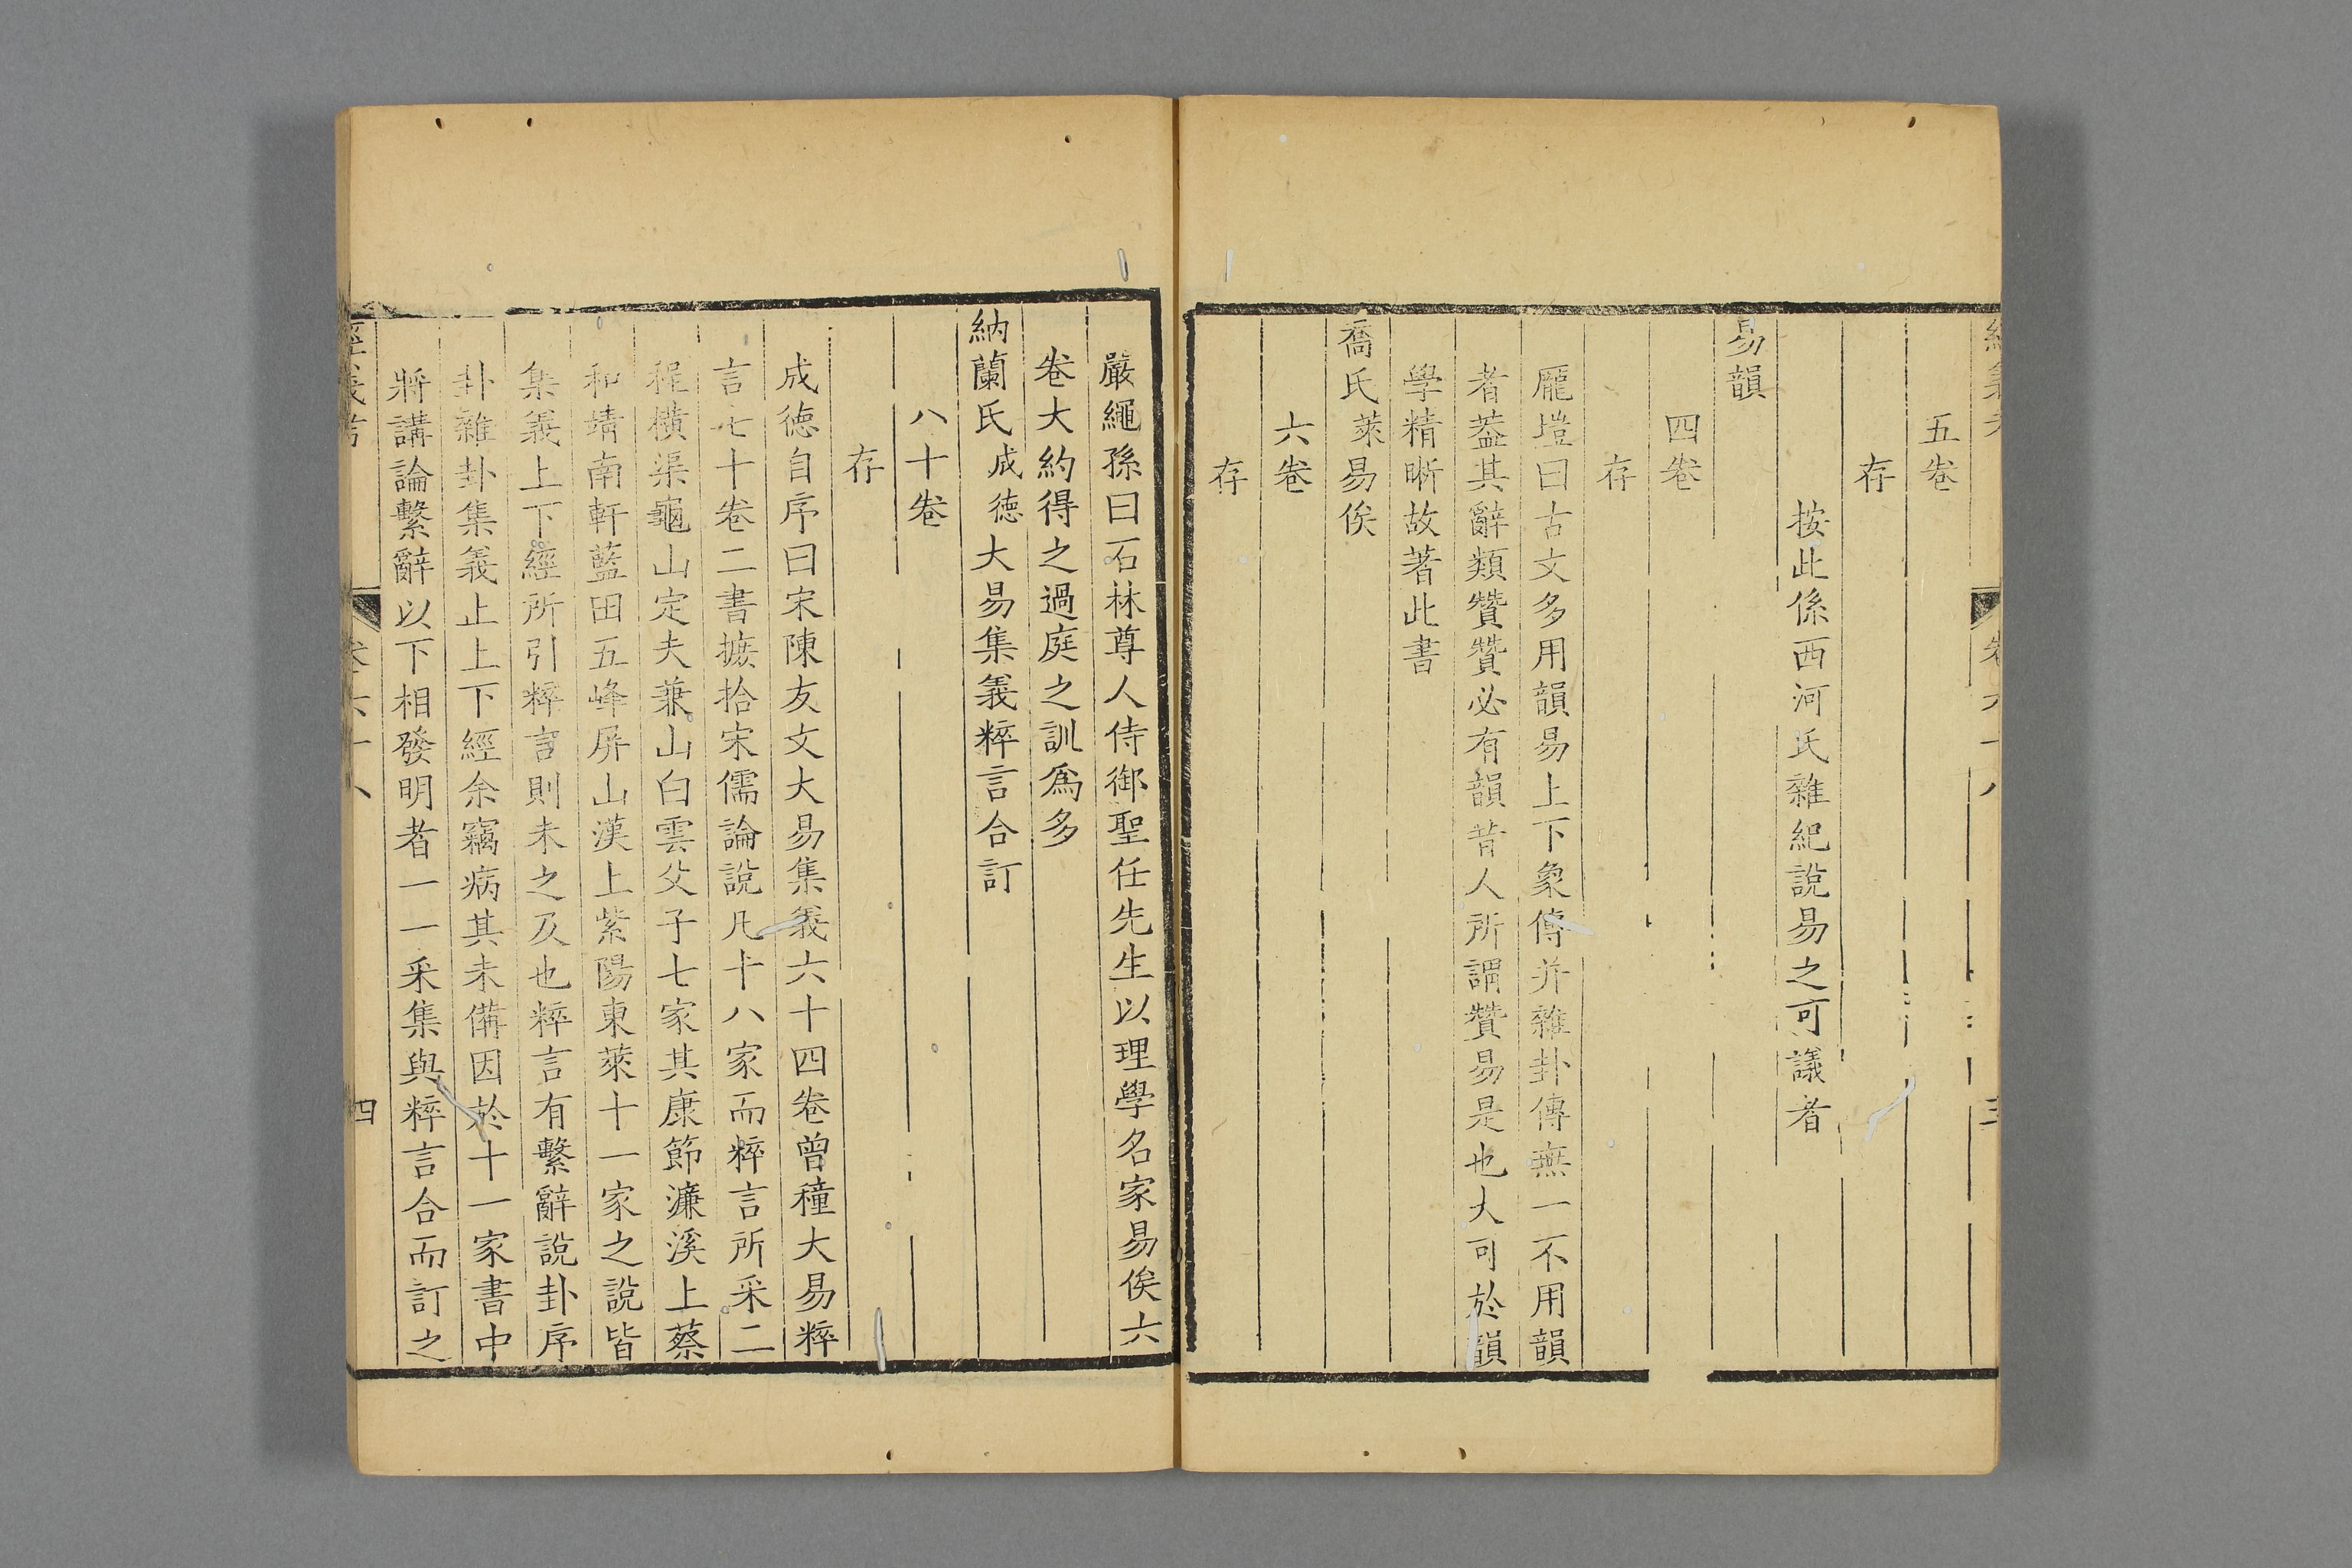 五卷
存
按此係西河氏雜紀說易之可議者
易韻
四卷
存
龎塏曰古文多用韻易上下象傳并雜卦傳無一不用韻
者葢其辭類贊贊必有韻昔人所謂贊易是也大可於韻
學精晰故著此書
喬氏萊易俟
六卷
存
嚴繩孫曰石林尊人侍御聖任先生以理學名家易俟六
卷大約得之過庭之訓爲多
納蘭氏成德大易集義粹言合訂
八十卷
存
成德自序曰宋陳友文大易集義六十四卷曾穜大易粹
言七十卷二書摭拾宋儒論說凡十八家而粹言所采二
程橫渠龜山定夫兼山白雲父子七家其康節濂溪上蔡
和靖南軒藍田五峰屏山漢上紫陽東萊十一家之說皆
集義上下經所引粹言則未之及也粹言有繫辭說卦序
卦雜卦集義止上下經余竊病其未備因於十一家書中
將講論繫辭以下相發明者一一采集與粹言合而訂之
四